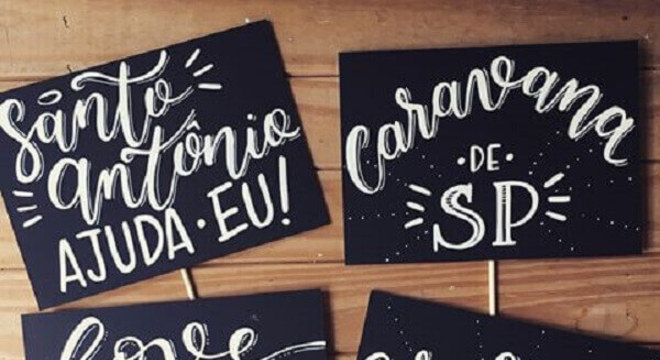 Santo
Antônio
AJUDA · EU!
Caravana
· DE ·
SP
love